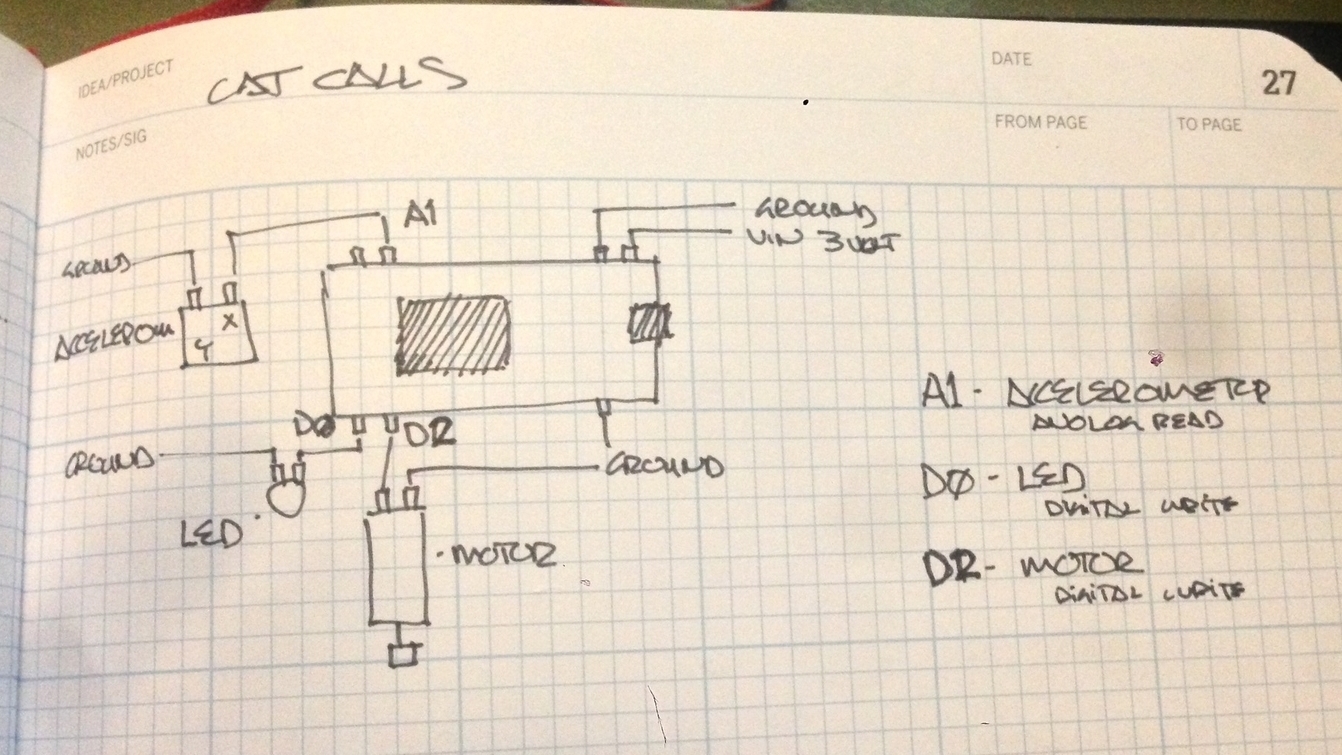 IDEA/PROJECT CAT CALLS
DATE
27
NOTES/SIG
FROM PAGE
TO PAGE
A1
GROUND
VIN 3 VOLT
GROUND
ACCELEROM
X
Y
D0
D2
GROUND
GROUND
LED
MOTOR
A1 - ACCELEROMETER
ANALOG READ
DØ - LED
DIGITAL WRITE
D2 - MOTOR
DIGITAL WRITE